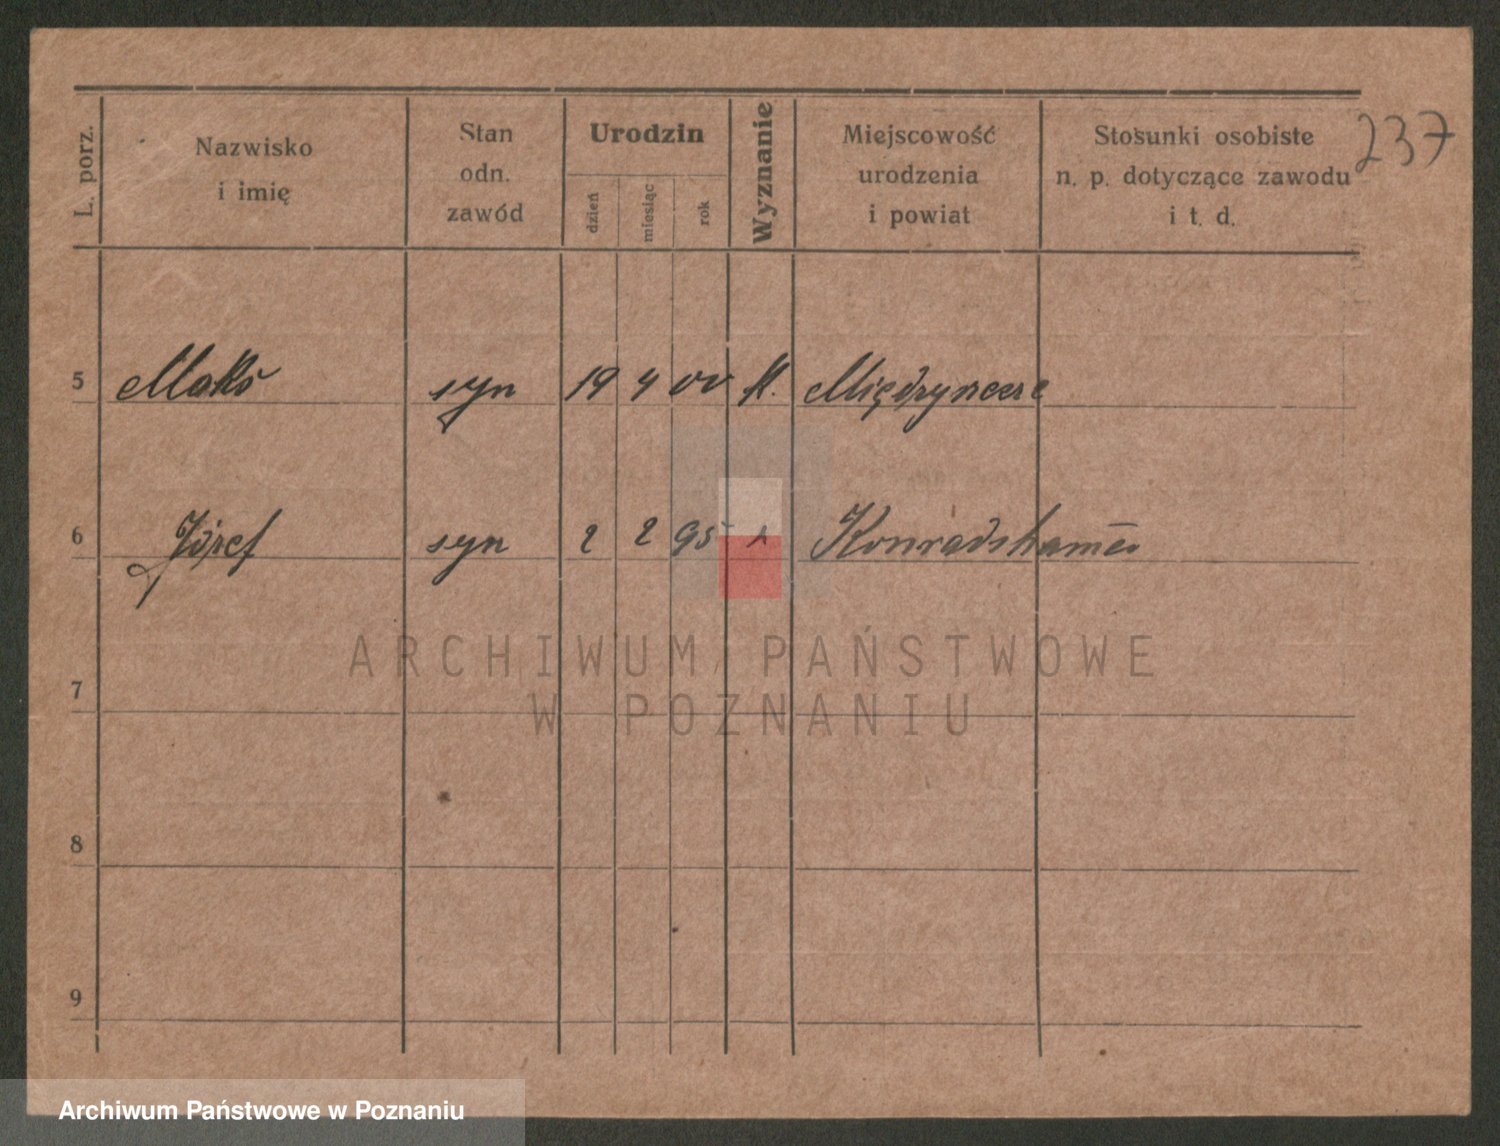 237
L. porz.
Nazwisko
i imię
Stan
odn.
zawód
Urodzin
dzień
miesiąc
rok
Wyznanie
Miejscowość
urodzenia
i powiat
Stosunki osobiste
n. p. dotyczące zawodu
i t. d.
5 Maks syn 19 4 00 K.
6 Józef syn 2 2 95
ARCHIWUM PAŃSTWOWE
W POZNANIU
7
8
9
Archiwum Państwowe w Poznaniu